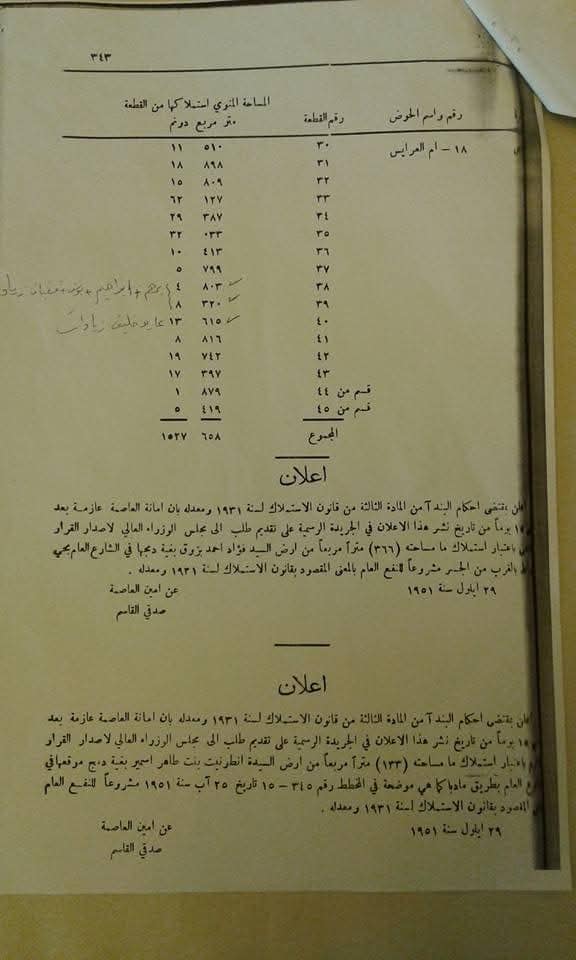 ٣٤٣
المساحة المنوي استملاكها من القطعة
رقم واسم الحوض رقم القطعة متر مربع دونم
١٨ - ام العرايس ٣٠ ٥١٠ ١١
٣١ ٨٩٨ ١٨
٣٢ ٨٠٩ ١٥
٣٣ ١٢٧ ٦٢
٣٤ ٣٨٧ ٢٩
٣٥ ٠٣٣ ٣٢
٣٦ ٤١٣ ١٠
٣٧ ٧٩٩ ٥
٣٨ ٨٠٣ ٤ ابراهيم +
٣٩ ٣٢٠ ٨
٤٠ ٦١٥ ١٣
٤١ ٨١٦ ٨
٤٢ ٧٤٢ ١٩
٤٣ ٣٩٧ ١٧
قسم من ٤٤ ٨٧٩ ١
قسم من ٤٥ ٤١٩ ٥
المجموع ٦٥٨ ١٥٢٧
اعلان
بمقتضى احكام البند آ من المادة الثالثة من قانون الاستملاك لسنة ١٩٣١ ومعدله بان امانة العاصمة عازمة بعد
١٥ يوماً من تاريخ نشر هذا الاعلان في الجريدة الرسمية على تقديم طلب الى مجلس الوزراء العالي لاصدار القرار
باعتبار استملاك ما مساحته (٣٦٦) متراً مربعاً من ارض السيد فؤاد احمد بزوق بغية دمجها في الشارع العام بحي
بالغرب من الجسر مشروعاً للنفع العام بالمعنى المقصود بقانون الاستملاك لسنة ١٩٣١ ومعدله .
٢٩ ايلول سنة ١٩٥١ عن امين العاصمة
صدقي القاسم
اعلان
بمقتضى احكام البند آ من المادة الثالثة من قانون الاستملاك لسنة ١٩٣١ ومعدله بان امانة العاصمة عازمة بعد
١٥ يوماً من تاريخ نشر هذا الاعلان في الجريدة الرسمية على تقديم طلب الى مجلس الوزراء العالي لاصدار القرار
باعتبار استملاك ما مساحته (١٣٣) متراً مربعاً من ارض السيدة انطرنيت بنت طاهر اسمير بغية دمج موقعها في
العام بطريق مادبا كما هي موضحة في المخطط رقم ٣٤٥ - ١٥ تاريخ ٢٥ آب سنة ١٩٥١ مشروعاً للنفع العام
المقصود بقانون الاستملاك لسنة ١٩٣١ ومعدله .
٢٩ ايلول سنة ١٩٥١ عن امين العاصمة
صدقي القاسم